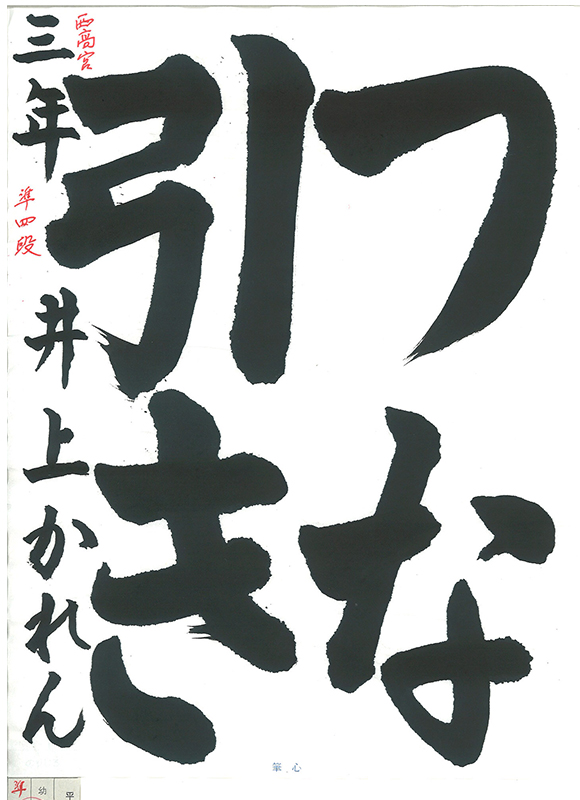 つな
引き
西高宮
三年 準四段 井上かれん
心筆
準 幼 平